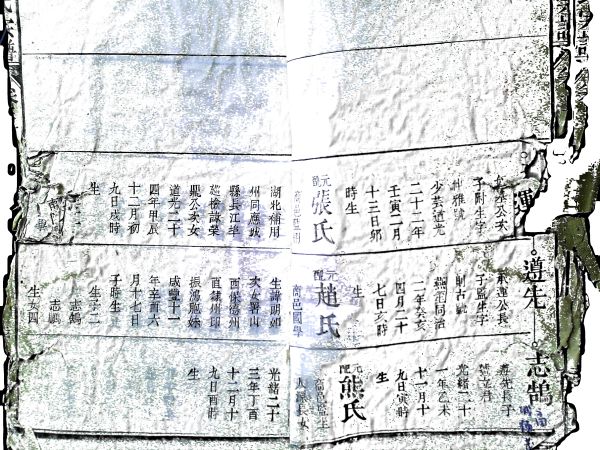 運
公次
子附生字
仲雅號
少荃道光
二十二年
壬寅二月
十三日卯
時生
元配張氏
湖北補用
州同應城
縣長江埠
巡檢諱榮
熙公次女
道光二十
四年甲辰
十二月初
九日戌時
生
遵先
運公長
子監生字
嗣古號
燕江同治
二年癸亥
四月二十
七日亥時
生
元配趙氏
商邑國學
生諱朗如
次女署山
西保德州
直隸州印
振鴻胞妹
咸豐十一
年辛酉六
月十七日
子時生
生子二
志鵠
志鵬
生女四
志鵠
遵先長子
號立君
光緒二十
一年乙未
十一月十
九日寅時
生
元配熊氏
商邑監生
長女
光緒二十
三年丁酉
十二月十
九日酉時
生